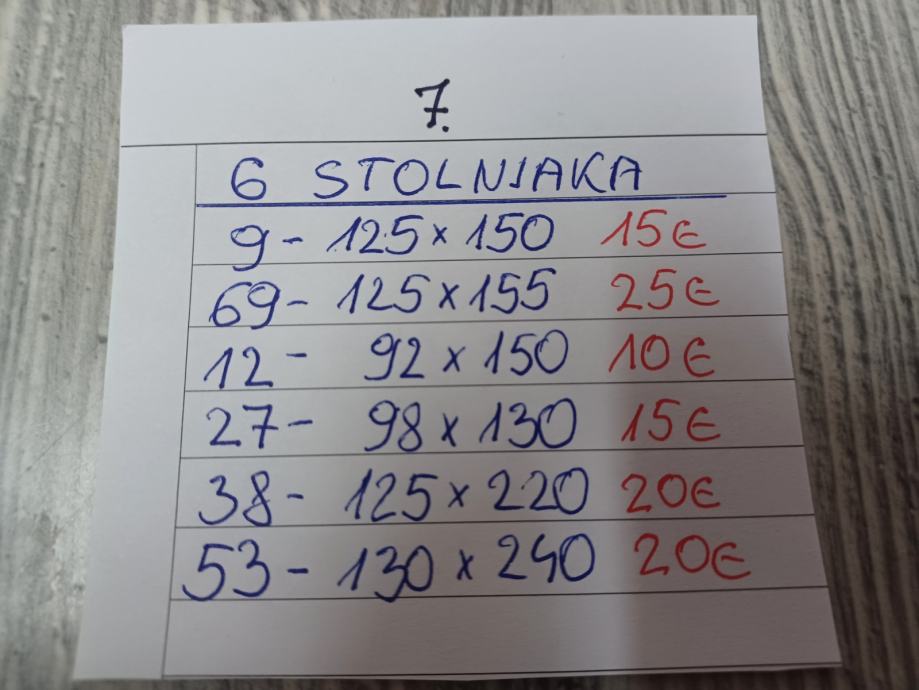 7.
6 STOLNJAKA
9 - 125 x 150 15€
69 - 125 x 155 25€
12 - 92 x 150 10€
27 - 98 x 130 15€
38 - 125 x 220 20€
53 - 130 x 240 20€